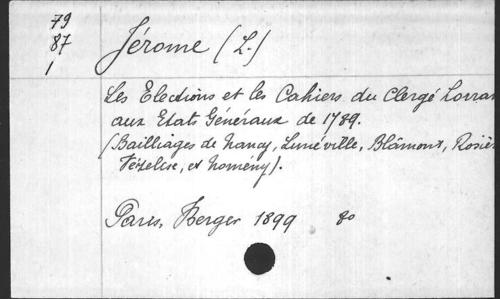 79
87
1
Jérome (L.)
Les Elections et les Cahiers du Clergé Lorrain
aux Etats Généraux de 1789.
(Bailliages de Nancy, Lunéville, Blâmont, Rosiè
Vézelise, et Nomeny).
Paris, Berger 1899 80